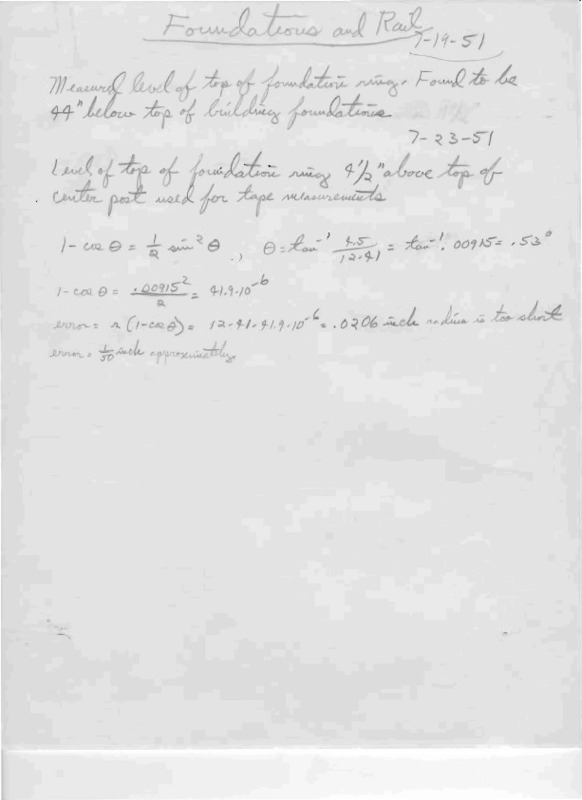 Foundations and Rail
7-19-51
Measured level of top of foundation ring. Found to be
44" below top of building foundations
7-23-51
Level of top of foundation ring 4 1/2" above top of
center post used for tape measurements
1-cos θ = 1/2 sin² θ , θ = tan⁻¹ 4.5/12·41 = tan⁻¹ .00915 = .53°
1-cos θ = .00915²/2 = 41.9·10⁻⁶
error = r (1-cos θ) = 12·41·41.9·10⁻⁶ = .0206 inch radius is too short
error = 1/50 inch approximately.